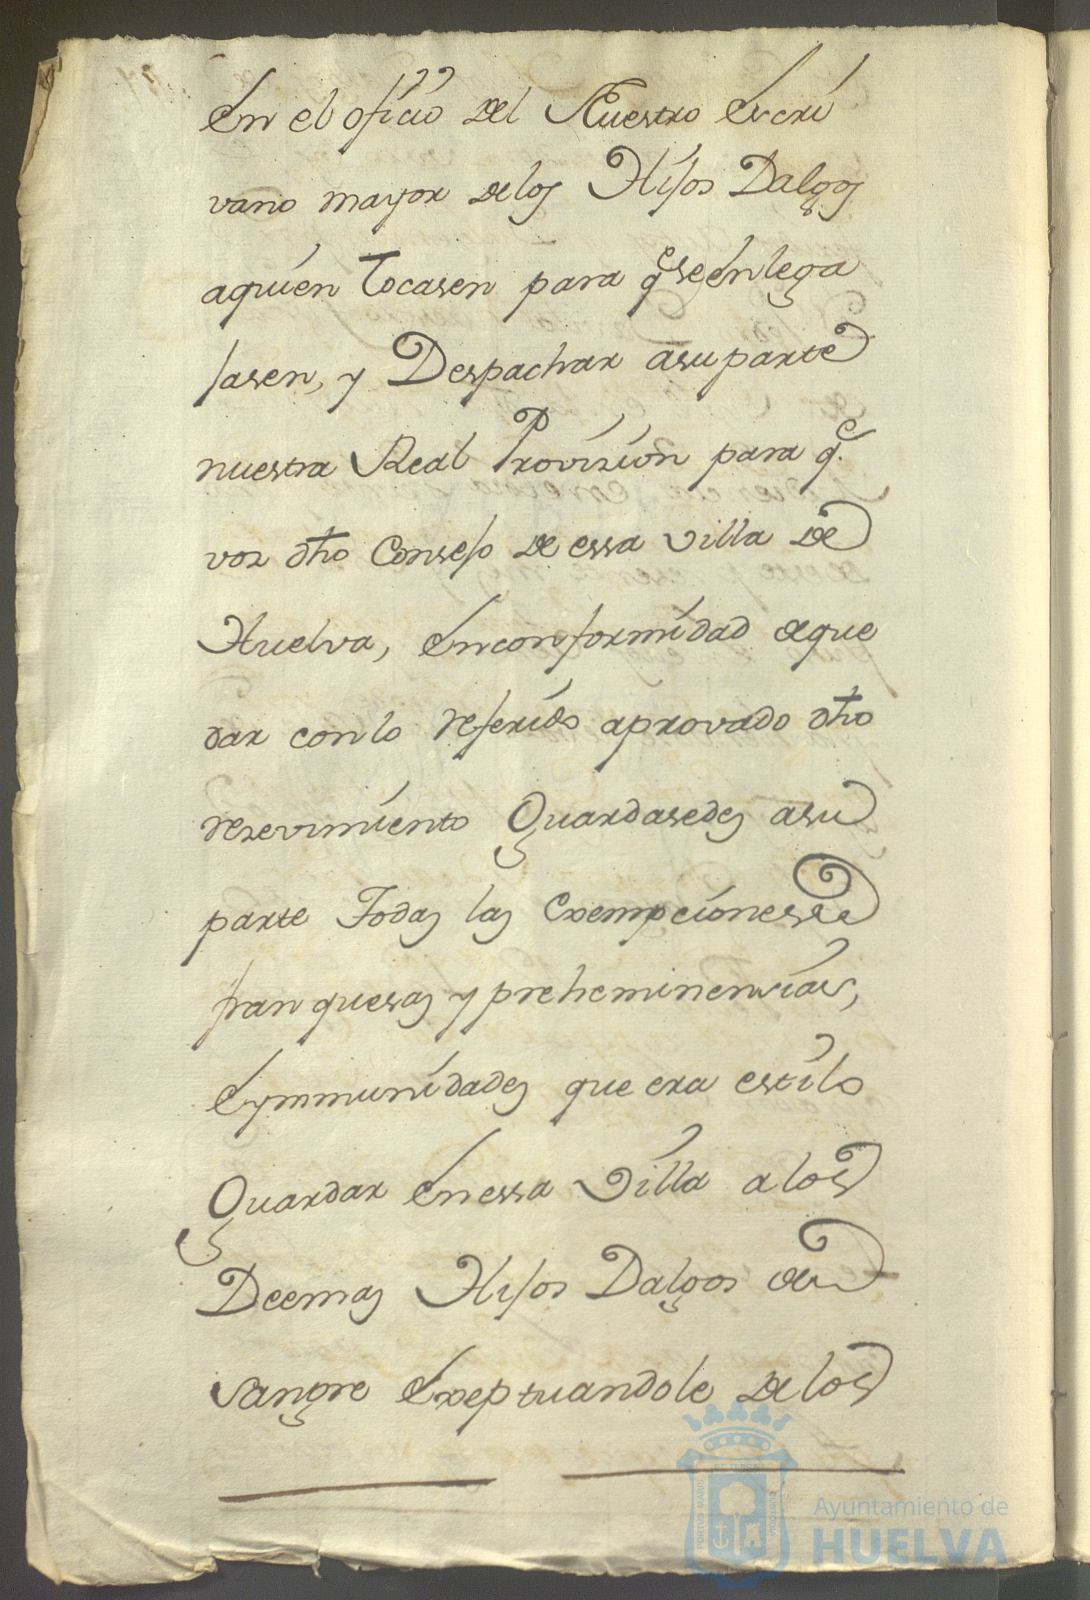 En el oficio del Nuestro Escri
vano mayor delos Hijos Dalgos
aquien Tocasen para qe se enlega
jasen, y Despachar asuparte
nuestra Real Provizion para qe.
vos dho Consejo de essa villa de
Huelva, enconformidad dque
dar con lo referido aprovado dho
rezevimiento Guardasedes asu
parte Todas las Exempciones
franquesas y preheminensias,
Eymmunidades que era estilo
Guardar Enessa Villa a los
Deemas Hijos Dalgos de
sangre Exeptuandole de los
Ayuntamiento de
HUELVA